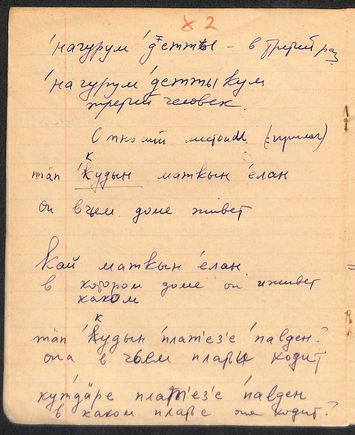 х 2
'нагурум 'дʼетты – в третий раз
'нагурум 'дʼетты кум
третий человек.
Относит местоим. (прилаг)
к
тап 'кудын маткын 'елан
он в чьем доме живет
кай маткын 'елан
в котором доме он живет
каком
к
тап 'кудын 'плат'ез'е 'павден?
она в чьем платье ходит
кутдӓре плат'ез'е 'павден
в каком платье она ходит?